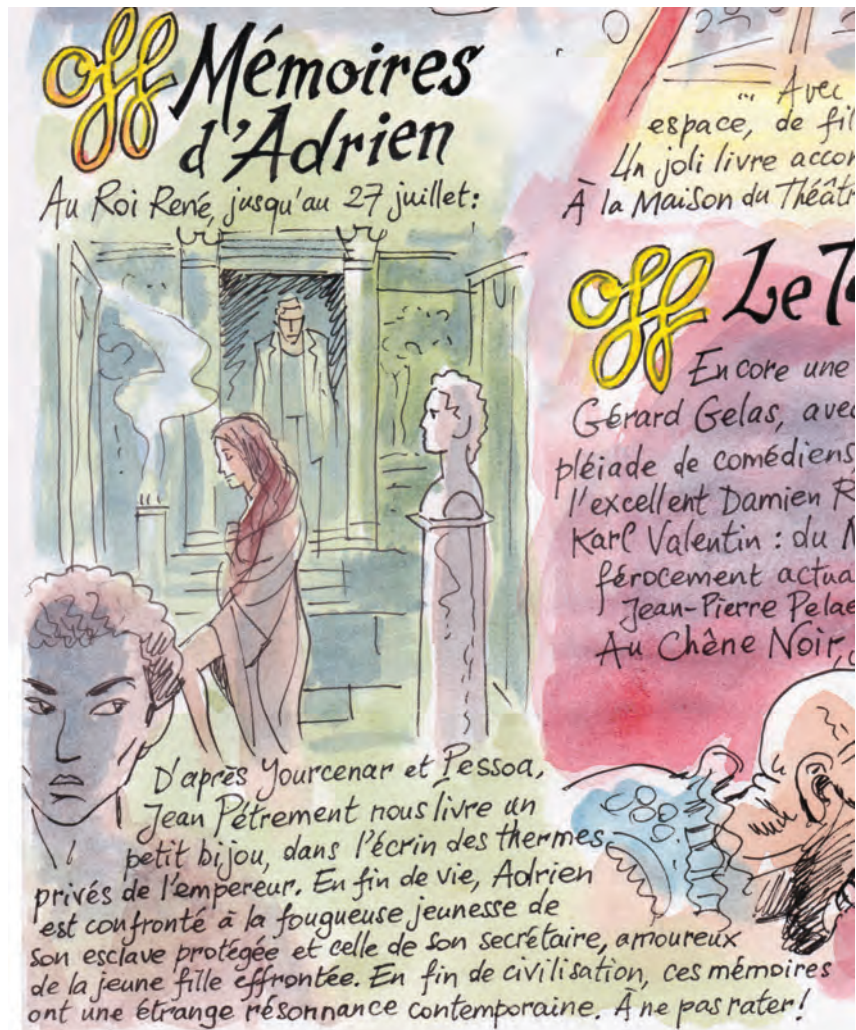 off Mémoires
d'Adrien
Au Roi René, jusqu'au 27 juillet:
D'après Yourcenar et Pessoa,
Jean Pétrement nous livre un
petit bijou, dans l'écrin des thermes
privés de l'empereur. En fin de vie, Adrien
est confronté à la fougueuse jeunesse de
son esclave protégée et celle de son secrétaire, amoureux
de la jeune fille effrontée. En fin de civilisation, ces mémoires
ont une étrange résonnance contemporaine. À ne pas rater!
... Avec
espace, de
Un joli livre
À la Maison du
off Le
Encore une
Gérard Gelas,
pléiade de comédiens
l'excellent Damien
Karl Valentin : du
férocement
Jean-Pierre
Au Chêne Noir,